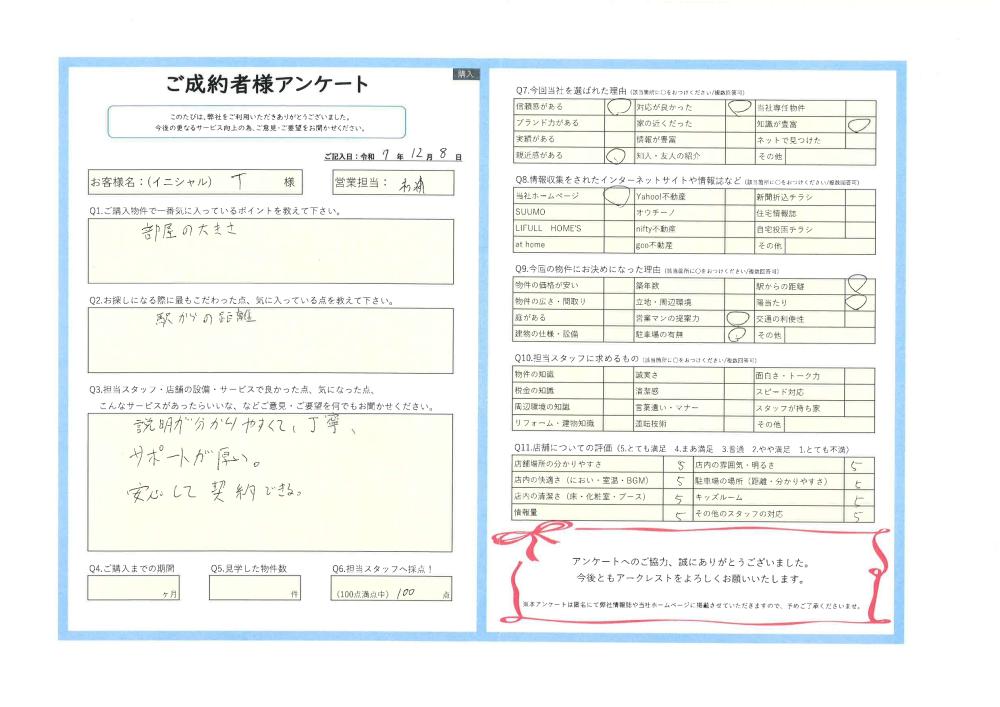 購入
ご成約者様アンケート
このたびは、弊社をご利用いただきありがとうございました。
今後の更なるサービス向上の為、ご意見・ご要望をお聞かせください。
ご記入日：令和 7 年 12 月 8 日
お客様名：(イニシャル) T 様
営業担当：
Q1.ご購入物件で一番気に入っているポイントを教えて下さい。
部屋の大きさ
Q2.お探しになる際に最もこだわった点、気に入っている点を教えて下さい。
駅からの距離
Q3.担当スタッフ・店舗の設備・サービスで良かった点、気になった点、
こんなサービスがあったらいいな、などご意見・ご要望を何でもお聞かせください。
説明が分かりやすくて、丁寧、
サポートが厚い。
安心して契約できる。
Q4.ご購入までの期間 Q5.見学した物件数 Q6.担当スタッフへ採点！
ヶ月 件 (100点満点中) 100 点
Q7.今回当社を選ばれた理由 (該当箇所に○をおつけください/複数回答可)
信頼感がある ○ 対応が良かった ○ 当社専任物件
ブランド力がある 家の近くだった 知識が豊富 ○
実績がある 情報が豊富 ネットで見つけた
親近感がある ○ 知人・友人の紹介 その他
Q8.情報収集をされたインターネットサイトや情報誌など (該当箇所に○をおつけください/複数回答可)
当社ホームページ ○ Yahoo!不動産 新聞折込チラシ
SUUMO オウチーノ 住宅情報誌
LIFULL HOME'S nifty不動産 自宅投函チラシ
at home goo不動産 その他
Q9.今回の物件にお決めになった理由 (該当箇所に○をおつけください/複数回答可)
物件の価格が安い 築年数 駅からの距離 ○
物件の広さ・間取り 立地・周辺環境 陽当たり ○
庭がある 営業マンの提案力 ○ 交通の利便性
建物の仕様・設備 駐車場の有無 ○ その他
Q10.担当スタッフに求めるもの (該当箇所に○をおつけください/複数回答可)
物件の知識 誠実さ 面白さ・トーク力
税金の知識 清潔感 スピード対応
周辺環境の知識 言葉遣い・マナー スタッフが持ち家
リフォーム・建物知識 運転技術 その他
Q11.店舗についての評価 (5.とても満足 4.まあ満足 3.普通 2.やや満足 1.とても不満)
店舗場所の分かりやすさ 5 店内の雰囲気・明るさ 5
店内の快適さ (におい・室温・BGM) 5 駐車場の場所 (距離・分かりやすさ) 5
店内の清潔さ (床・化粧室・ブース) 5 キッズルーム 5
情報量 5 その他のスタッフの対応 5
アンケートへのご協力、誠にありがとうございました。
今後ともアークレストをよろしくお願いいたします。
※本アンケートは匿名にて弊社情報誌や当社ホームページに掲載させていただきますので、予めご了承くださいませ。